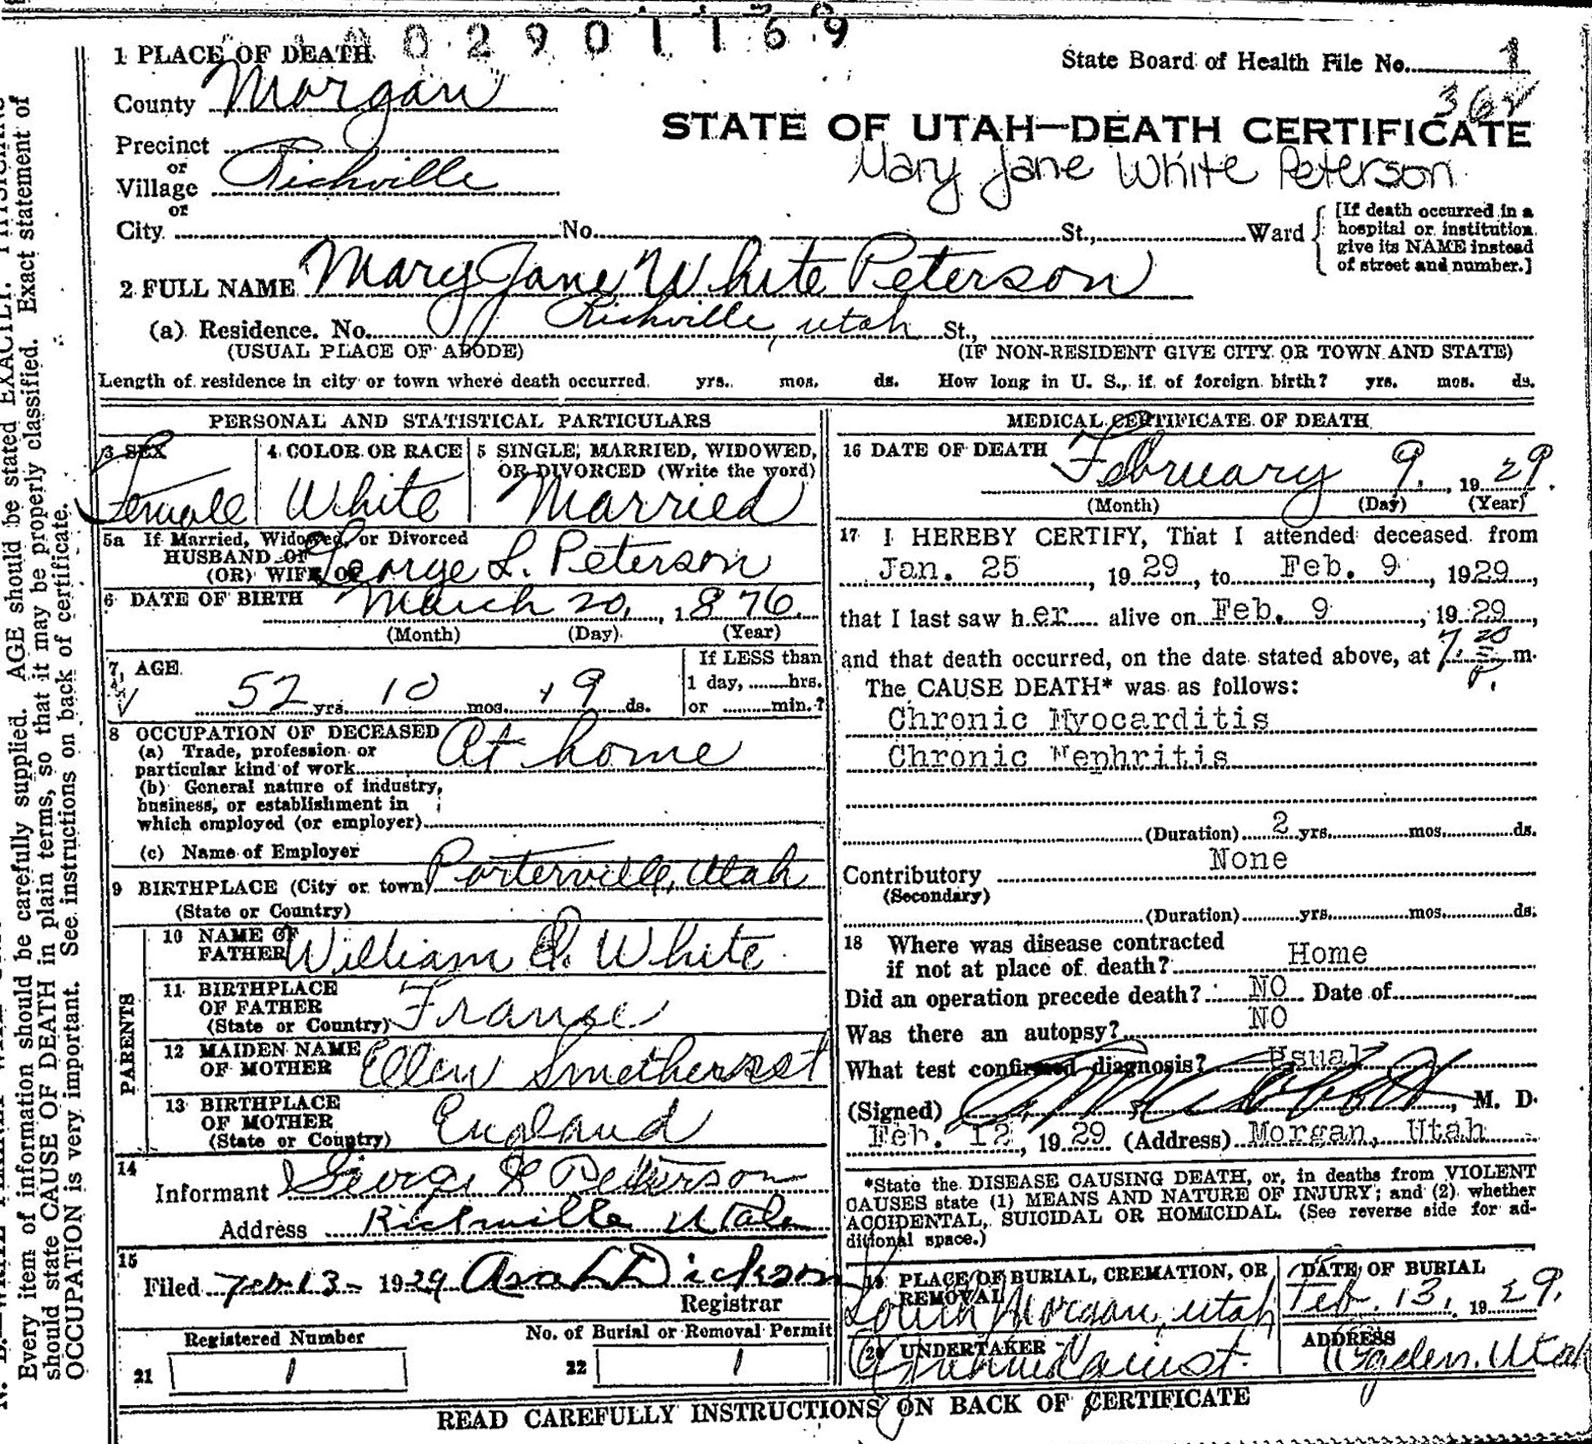 0 2 9 0 1 1 6 9
1 PLACE OF DEATH
State Board of Health File No. 1
County Morgan
362
STATE OF UTAH—DEATH CERTIFICATE
Mary Jane White Peterson
Precinct
or
Village Richville
or
City No. St., Ward
[If death occurred in a
hospital or institution
give its NAME instead
of street and number.]
2 FULL NAME Mary Jane White Peterson
(a) Residence. No. Richville, Utah St.,
(USUAL PLACE OF ABODE) (IF NON-RESIDENT GIVE CITY OR TOWN AND STATE)
Length of residence in city or town where death occurred. yrs. mos. ds. How long in U. S., if of foreign birth? yrs. mos. ds.
PERSONAL AND STATISTICAL PARTICULARS
3 SEX
Female
4 COLOR OR RACE
White
5 SINGLE, MARRIED, WIDOWED,
OR DIVORCED (Write the word)
Married
5a If Married, Widowed, or Divorced
HUSBAND OF
(OR) WIFE OF George L. Peterson
6 DATE OF BIRTH March 20, 1876.
(Month) (Day) (Year)
7 AGE
52 yrs. 10 mos. 19 ds.
If LESS than
1 day, hrs.
or min.?
8 OCCUPATION OF DECEASED
(a) Trade, profession or
particular kind of work At home
(b) General nature of industry,
business, or establishment in
which employed (or employer)
(c) Name of Employer
9 BIRTHPLACE (City or town) Porterville, Utah
(State or Country)
PARENTS
10 NAME OF
FATHER William White
11 BIRTHPLACE
OF FATHER
(State or Country) France
12 MAIDEN NAME
OF MOTHER Ellen Smetherst
13 BIRTHPLACE
OF MOTHER
(State or Country) England
14
Informant George L Peterson
Address Richville Utah
15
Filed Feb 13- 1929 Asa L Dickson
Registrar
Registered Number
21 1
No. of Burial or Removal Permit
22 1
MEDICAL CERTIFICATE OF DEATH
16 DATE OF DEATH February 9, 1929.
(Month) (Day) (Year)
17 I HEREBY CERTIFY, That I attended deceased from
Jan. 25, 1929, to Feb. 9, 1929,
that I last saw her alive on Feb. 9, 1929,
and that death occurred, on the date stated above, at 7:20 P. m.
The CAUSE DEATH* was as follows:
Chronic Myocarditis
Chronic Nephritis
(Duration) 2 yrs. mos. ds.
Contributory None
(Secondary)
(Duration) yrs. mos. ds.
18 Where was disease contracted
if not at place of death? Home
Did an operation precede death? NO Date of
Was there an autopsy? NO
What test confirmed diagnosis? Usual
(Signed) , M. D.
Feb. 12, 1929 (Address) Morgan, Utah
*State the DISEASE CAUSING DEATH, or, in deaths from VIOLENT
CAUSES state (1) MEANS AND NATURE OF INJURY; and (2) whether
ACCIDENTAL, SUICIDAL OR HOMICIDAL. (See reverse side for ad-
ditional space.)
19 PLACE OF BURIAL, CREMATION, OR
REMOVAL
South Morgan, Utah
DATE OF BURIAL
Feb. 13, 1929.
20 UNDERTAKER
ADDRESS
Ogden, Utah
READ CAREFULLY INSTRUCTIONS ON BACK OF CERTIFICATE
Every item of information should be carefully supplied. AGE should be stated EXACTLY. PHYSICIANS
should state CAUSE OF DEATH in plain terms, so that it may be properly classified. Exact statement of
OCCUPATION is very important. See instructions on back of certificate.